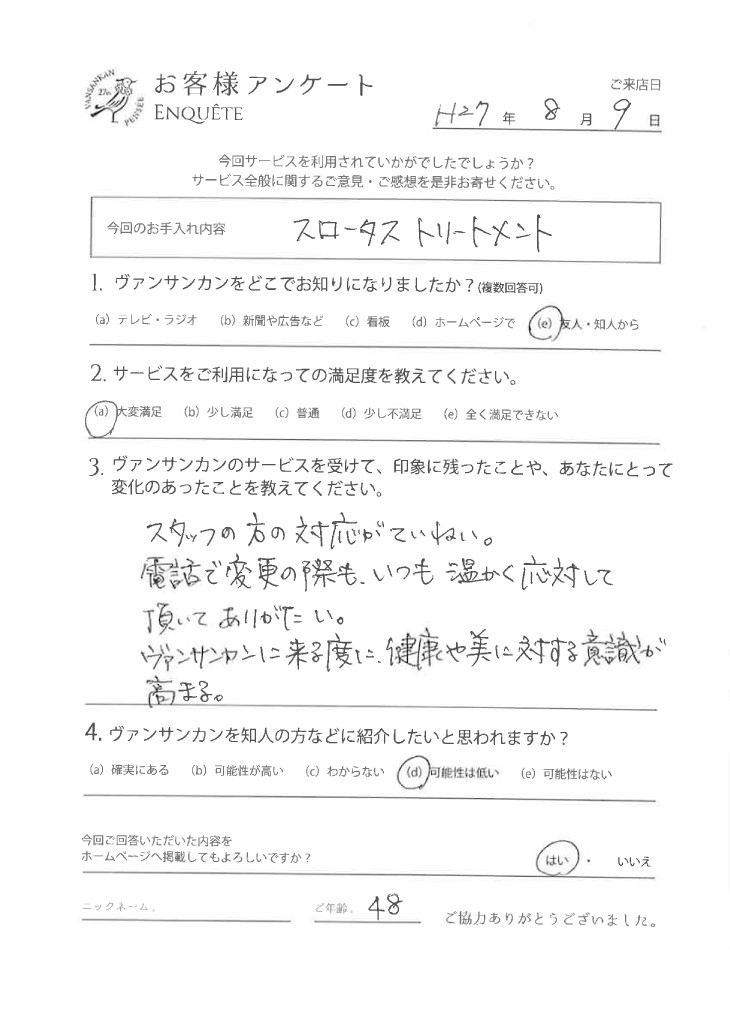 VANSANKAN 27th PENSÉE
お客様アンケート
ENQUÊTE
ご来店日
H27 年 8 月 9 日
今回サービスを利用されていかがでしたでしょうか？
サービス全般に関するご意見・ご感想を是非お寄せください。
今回のお手入れ内容 スロータス トリートメント
1. ヴァンサンカンをどこでお知りになりましたか？(複数回答可)
(a) テレビ・ラジオ (b) 新聞や広告など (c) 看板 (d) ホームページで (e) 友人・知人から
2. サービスをご利用になっての満足度を教えてください。
(a) 大変満足 (b) 少し満足 (c) 普通 (d) 少し不満足 (e) 全く満足できない
3. ヴァンサンカンのサービスを受けて、印象に残ったことや、あなたにとって
変化のあったことを教えてください。
スタッフの方の対応がていねい。
電話で変更の際も、いつも温かく応対して
頂いてありがたい。
ヴァンサンカンに来る度に、健康や美に対する意識が
高まる。
4. ヴァンサンカンを知人の方などに紹介したいと思われますか？
(a) 確実にある (b) 可能性が高い (c) わからない (d) 可能性は低い (e) 可能性はない
今回ご回答いただいた内容を
ホームページへ掲載してもよろしいですか？
はい ・ いいえ
ニックネーム. ご年齢. 48 ご協力ありがとうございました。